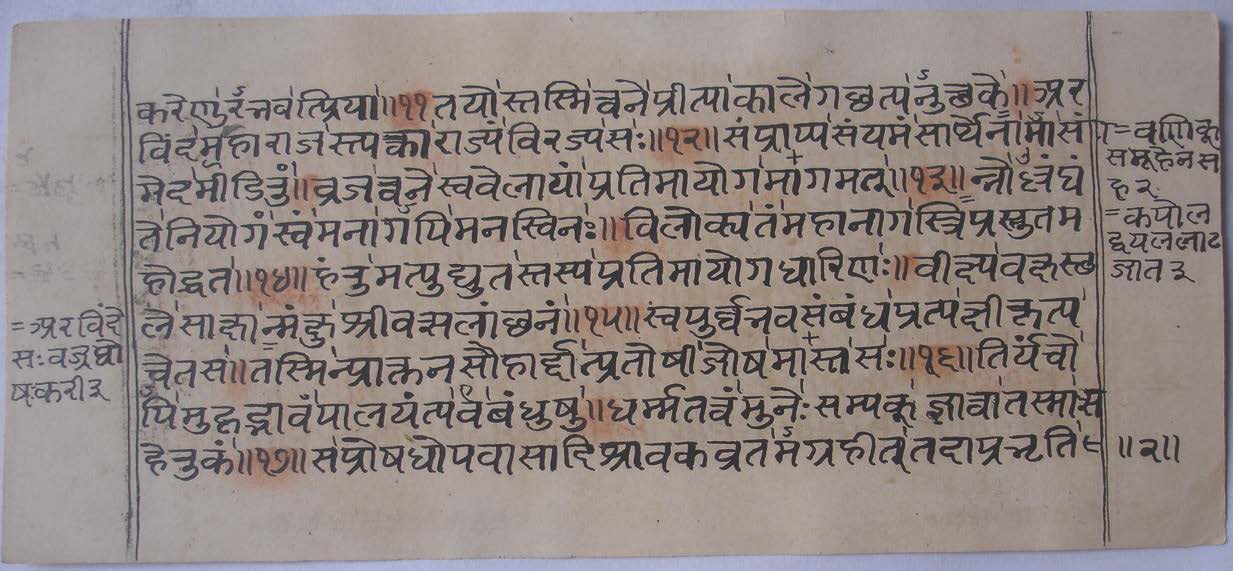 करेणुरभवत्प्रिया॥११॥तयोस्तस्मिन्वनेप्रीत्याकालेगच्छत्यनुच्छके॥अर
विंदमहाराजस्त्यक्काराज्यंविरज्यसः॥१२॥संप्राप्यसंयमंसार्थेनामासं
मेदमीडितुं॥व्रजन्वनेस्ववेलायांप्रतिमायोगमागमत्॥१३॥नोल्लंघं
तेनियोगंस्वंमनागपिमनस्विनः॥विलोक्यतंमहानागस्त्रिप्रस्तुतम
दोद्धतः॥१४॥हंतुमत्युद्युतस्तस्यप्रतिमायोगधारिणः॥वीक्ष्यवक्षस्छ
लेसाक्षान्मंक्षुश्रीवत्सलांछनं॥१५॥स्वपुर्व्वभवसंबंधंप्रत्यक्षीकृत्य
चेतसा॥तस्मिन्प्राक्तनसौहार्द्दात्प्रतोषीजोषमास्तसः॥१६॥तिर्यंचो
पिसुहृद्भावंपालयंत्येवबंधुषु॥धर्म्मतत्वंमुनेःसम्यक्ज्ञात्वातस्मात्स
हेतुकं॥१७॥सप्रोषधोपवासादिश्रावकव्रतमग्रहीत्तदाप्रभृति
॥२॥
=वणिक्
समूहेनस
ह२
=कपोल
द्वयललाट
जात३
=अरविंदे
सःवज्रघो
षकरी३